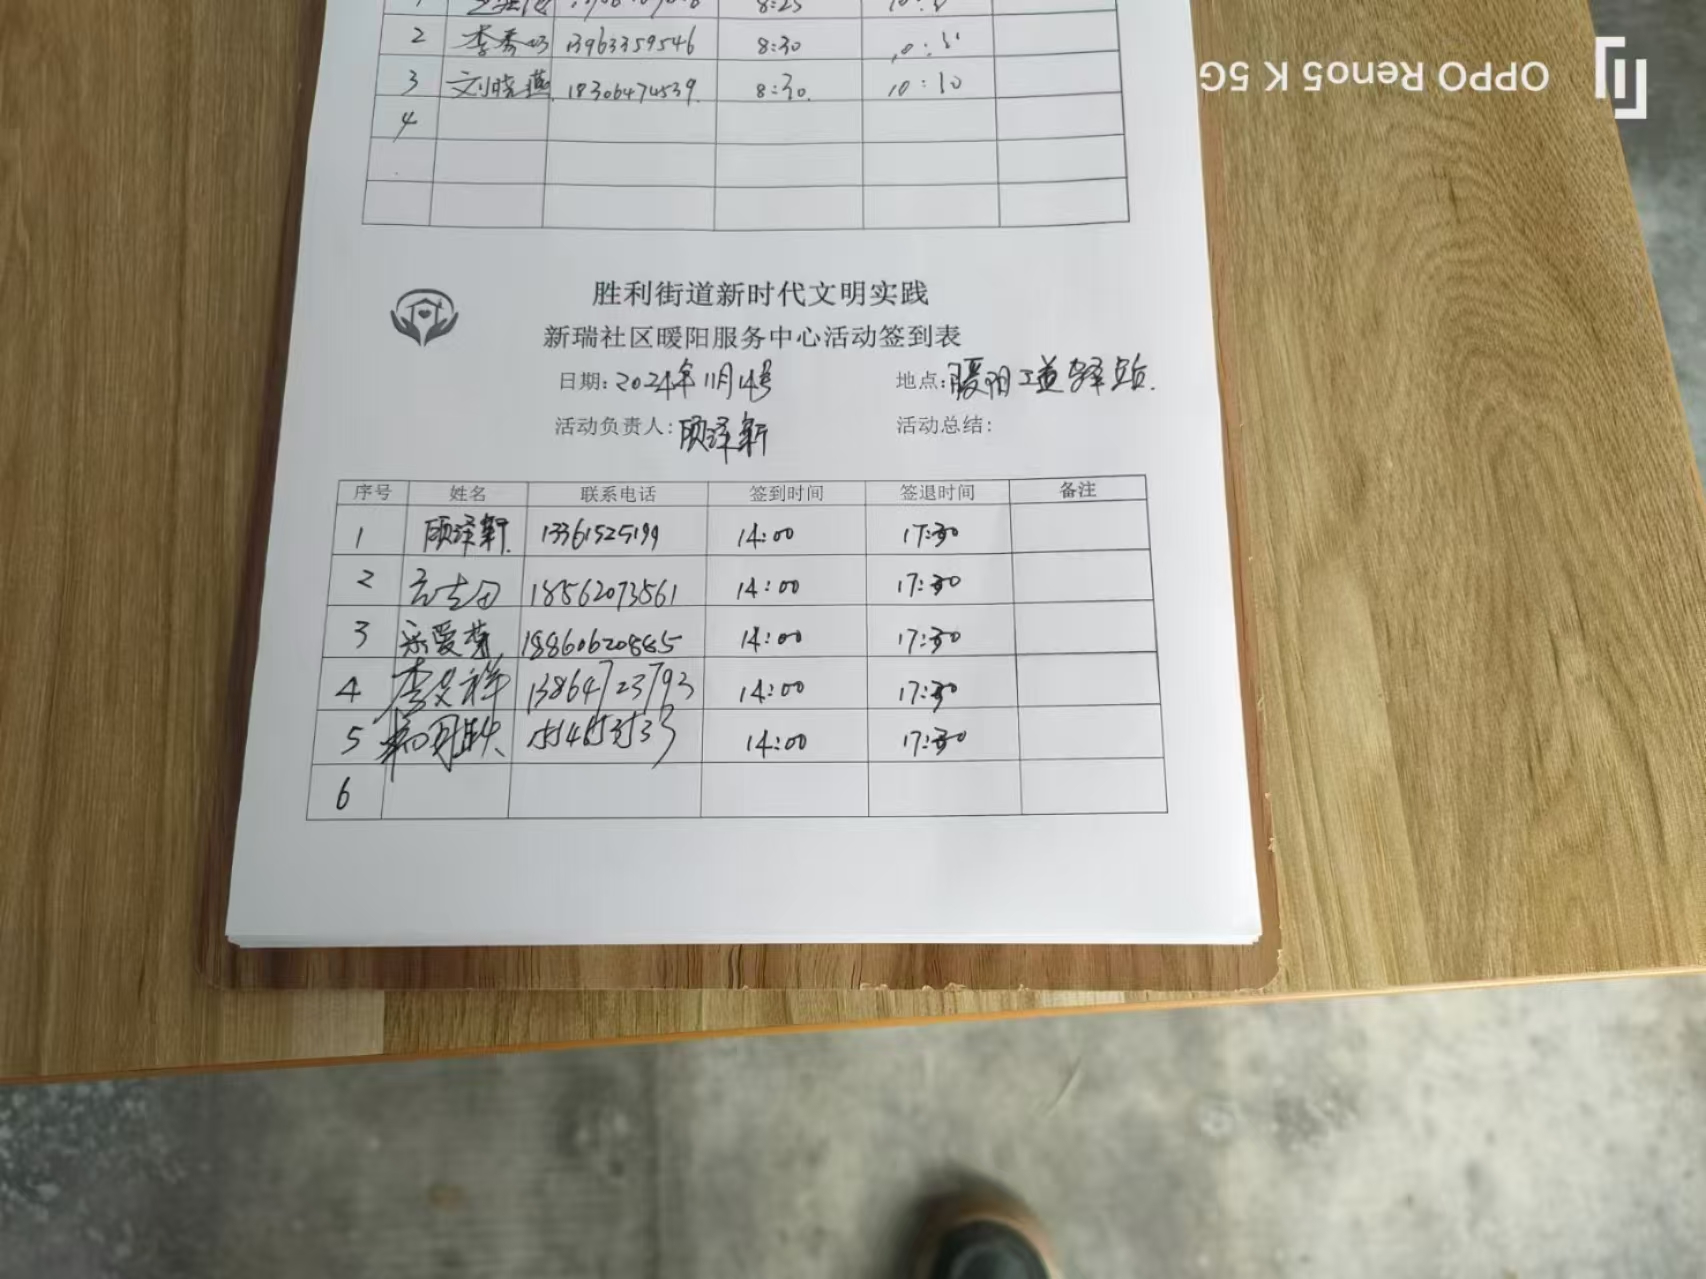 8:25
2 李秀 13963359546 8:30
3 刘晓燕 18306474539 8:30 10:10
4
胜利街道新时代文明实践
新瑞社区暖阳服务中心活动签到表
日期: 2024年11月14号 地点: 暖阳工道驿站.
活动负责人: 顾泽新 活动总结:
序号 姓名 联系电话 签到时间 签退时间 备注
1 顾泽新 13361525199 14:00 17:30
2 18562073561 14:00 17:30
3 14:00 17:30
4 李文祥 13864723793 14:00 17:30
5 14:00 17:30
6
OPPO Reno5 K 5G